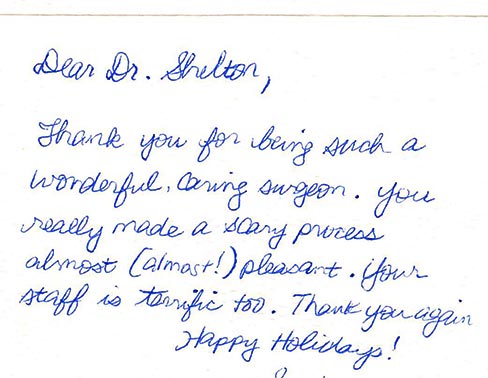 Dear Dr. Shelton,
Thank you for being such a
wonderful, caring surgeon. You
really made a scary process
almost (almost!) pleasant. Your
staff is terrific too. Thank you again
Happy Holidays!